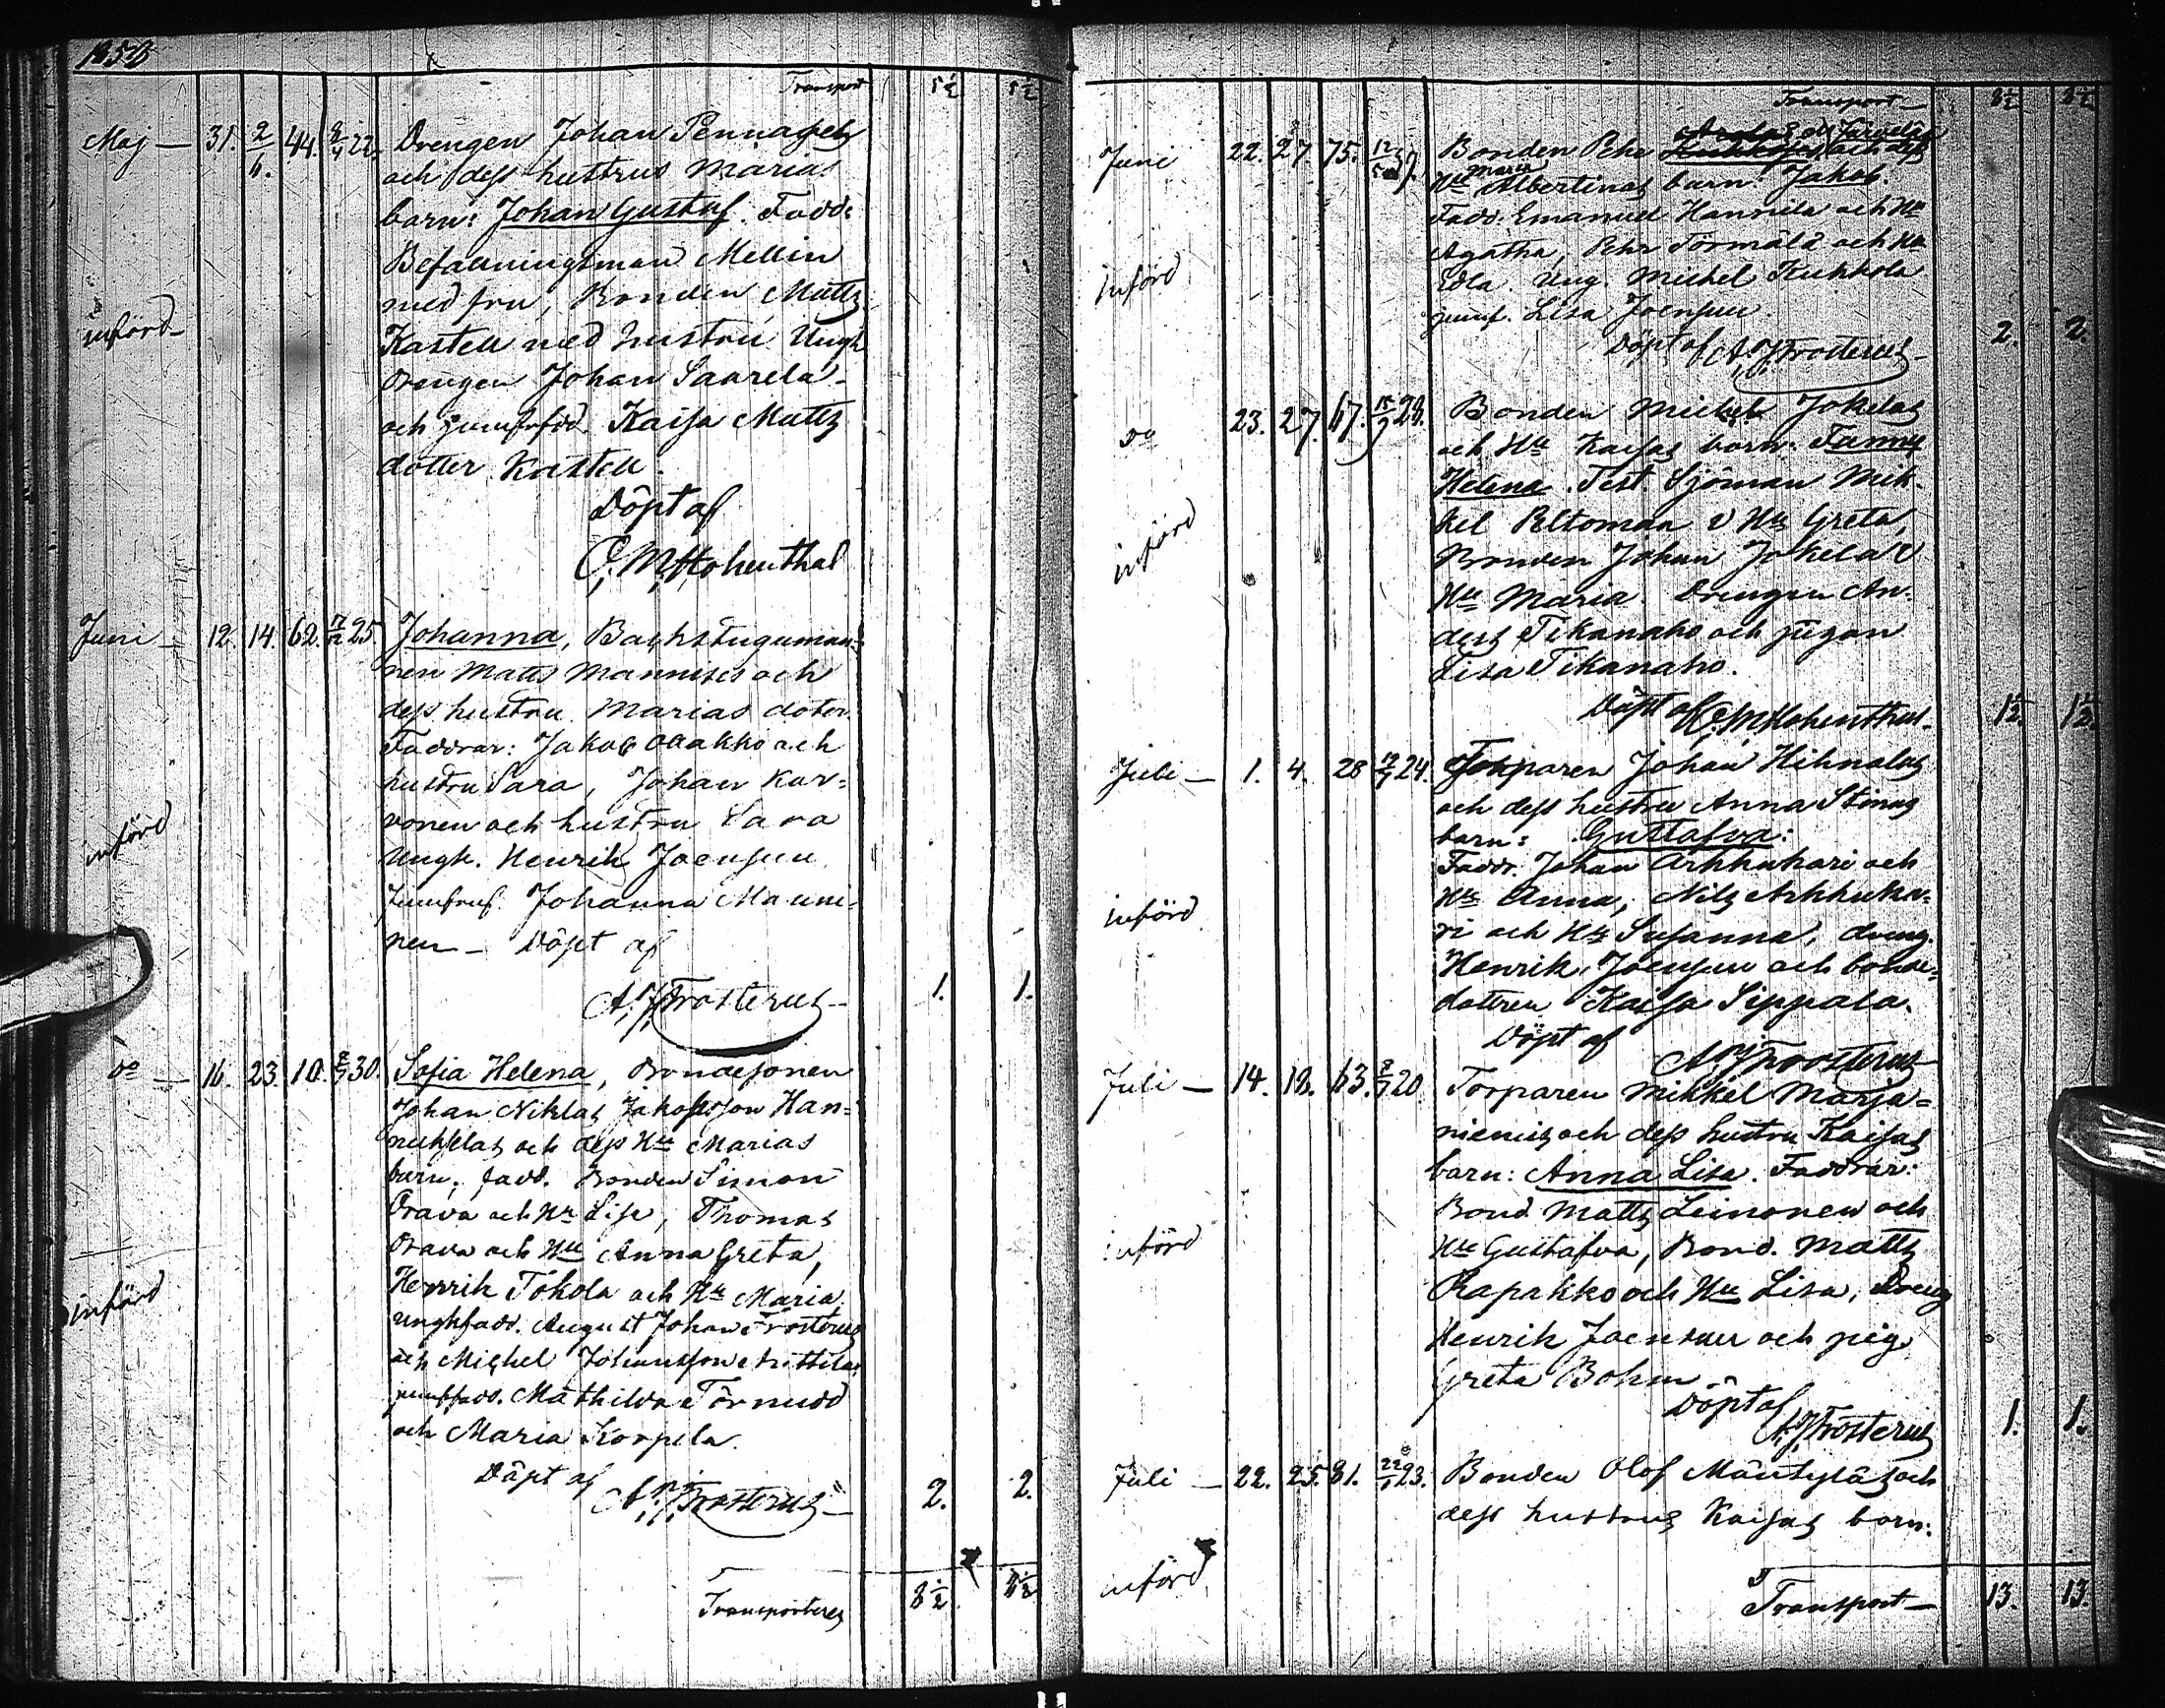 Transport 5½ 5½
Maj — 31. 2/6. 44. 22. Drengen Johan Pennases
och dess hustrus Marias
barn: Johan Gustaf. Fadd:
Befallningsman Mellin
med fru, Bonden Matts
införd Kastell med hustru Ungk
drengen Johan Saarela
och jumfrfdd. Kaisa Matts
dotter Kastell.
Döpt af
C. M. Hohenthal
Juni — 12. 14. 62. 25. Johanna, Backstuguman-
nen Matts Mannises och
dess hustru Marias doter.
Faddrar: Jakob och
hustru Sara, Johan Kar-
vonen och hustru Sara
införd Ungk. Henrik Joensuu
Jumfruf. Johanna Mauni-
nen — Döpt af
A. J. Frosterus 1. 1.
do — 16. 23. 10. 30. Sofia Helena, Bondesonen
Johan Niklas Jakobsson Han-
nukselas och dess Hu Marias
barn. fadd. Bonden Simon
Orava och Hu Lisa, Thomas
Orava och Hu Anna Greta,
införd Henrik Tokola och Hu Maria
ungkfadd. August Johan Frosterus
och Michel Johansson
jumffadd. Mathilda Törnudd
och Maria Korpela.
Döpt af A. J. Frosterus 2. 2.
Transporteres 8½ 8½
Transport — 8½ 8½
Järvelä
Juni 22. 27. 75. Bonden Pehr och dess
Maria
Hu Albertinas barn: Jakob.
Fadd: Emanuel Hannila och Hu
Agatha, Pehr Törmälä och Hu
införd Edla. Ung. Michel Kukkola
jumf. Lisa Joensuu.
Döpt af A. J. Frosterus 2. 2.
do 23. 27. 67. 28. Bonden Michel Jokelas
och Hu Kaisas barn: Fanny
Helena. Test. Sjöman Mik-
kel Peltoman o Hu Greta,
införd Bonden Johan Jokela o
Hu Maria. Drengen An-
ders Tikanaho och pigan
Lisa Tikanaho.
Döpt af C. M. Hohenthal. 1½. 1½.
Juli — 1. 4. 28 24. Torparen Johan Hihnalas
och dess hustru Anna Stinas
barn: Gustafva:
Fadd. Johan Arkkukari och
införd Hu Anna, Nils Arkkuka-
ri och Hu Susanna, dreng.
Henrik Joensuu och bonde-
dottren Kaisa Sippala.
Döpt af
A. J. Frosterus
Juli — 14. 18. 63. 20. Torparen Mikkel Marja-
niemis och dess hustru Kaisas
barn: Anna Lisa. Faddrar:
Bond Matts Leinonen och
införd Hu Gustafva, Bond. Matts
Rapakko och Hu Lisa, Dreng
Henrik Joensuu och pig.
Greta Bohm —
Döpt af
A. J. Frosterus 1. 1.
Juli — 22. 25. 81. 23. Bonden Olof Mäntyläs och
dess hustrus Kaisas barn:
införd
Transport — 13. 13.